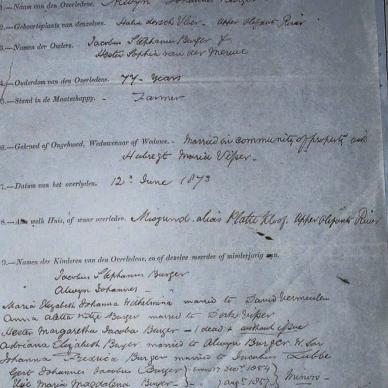 1.—Naam van den Overledene. Alwyn Johannes Burger
2.—Geboorteplaats van denzelven. Upper Olifants River
3.—Namen der Ouders. Jacobus Stephanus Burger &
Hester Sophia van der Merwe
4.—Ouderdom van den Overledene. 77 Years
5.—Stand in de Maatschappy. Farmer
6.—Gehuwd of Ongehuwd, Weduwenaar of Weduwe. Married in community of property with
Huibregt Maria Visser
7.—Datum van het overlyden. 12th June 1873
8.—Aan welk Huis, of waar overleden. alias Platte Kloof Upper Olifants River
9.—Namen der Kinderen van den Overledene, en of dezelve meerder of minderjarig zyn.
Jacobus Stephanus Burger
Alwyn Johannes - " -
Maria Elizabeth Johanna Wilhelmina married to David Vermeulen
Anna Burger married to Visser
Hester Margaretha Jacoba Burger - (dead & without issue
Adriana Elizabeth Burger married to Alwyn Burger
Johanna Burger married to Lubbe
Gert Johannes Jacobus Burger Decr 1854
Maria Magdalena Burger Augt 1857 Minors